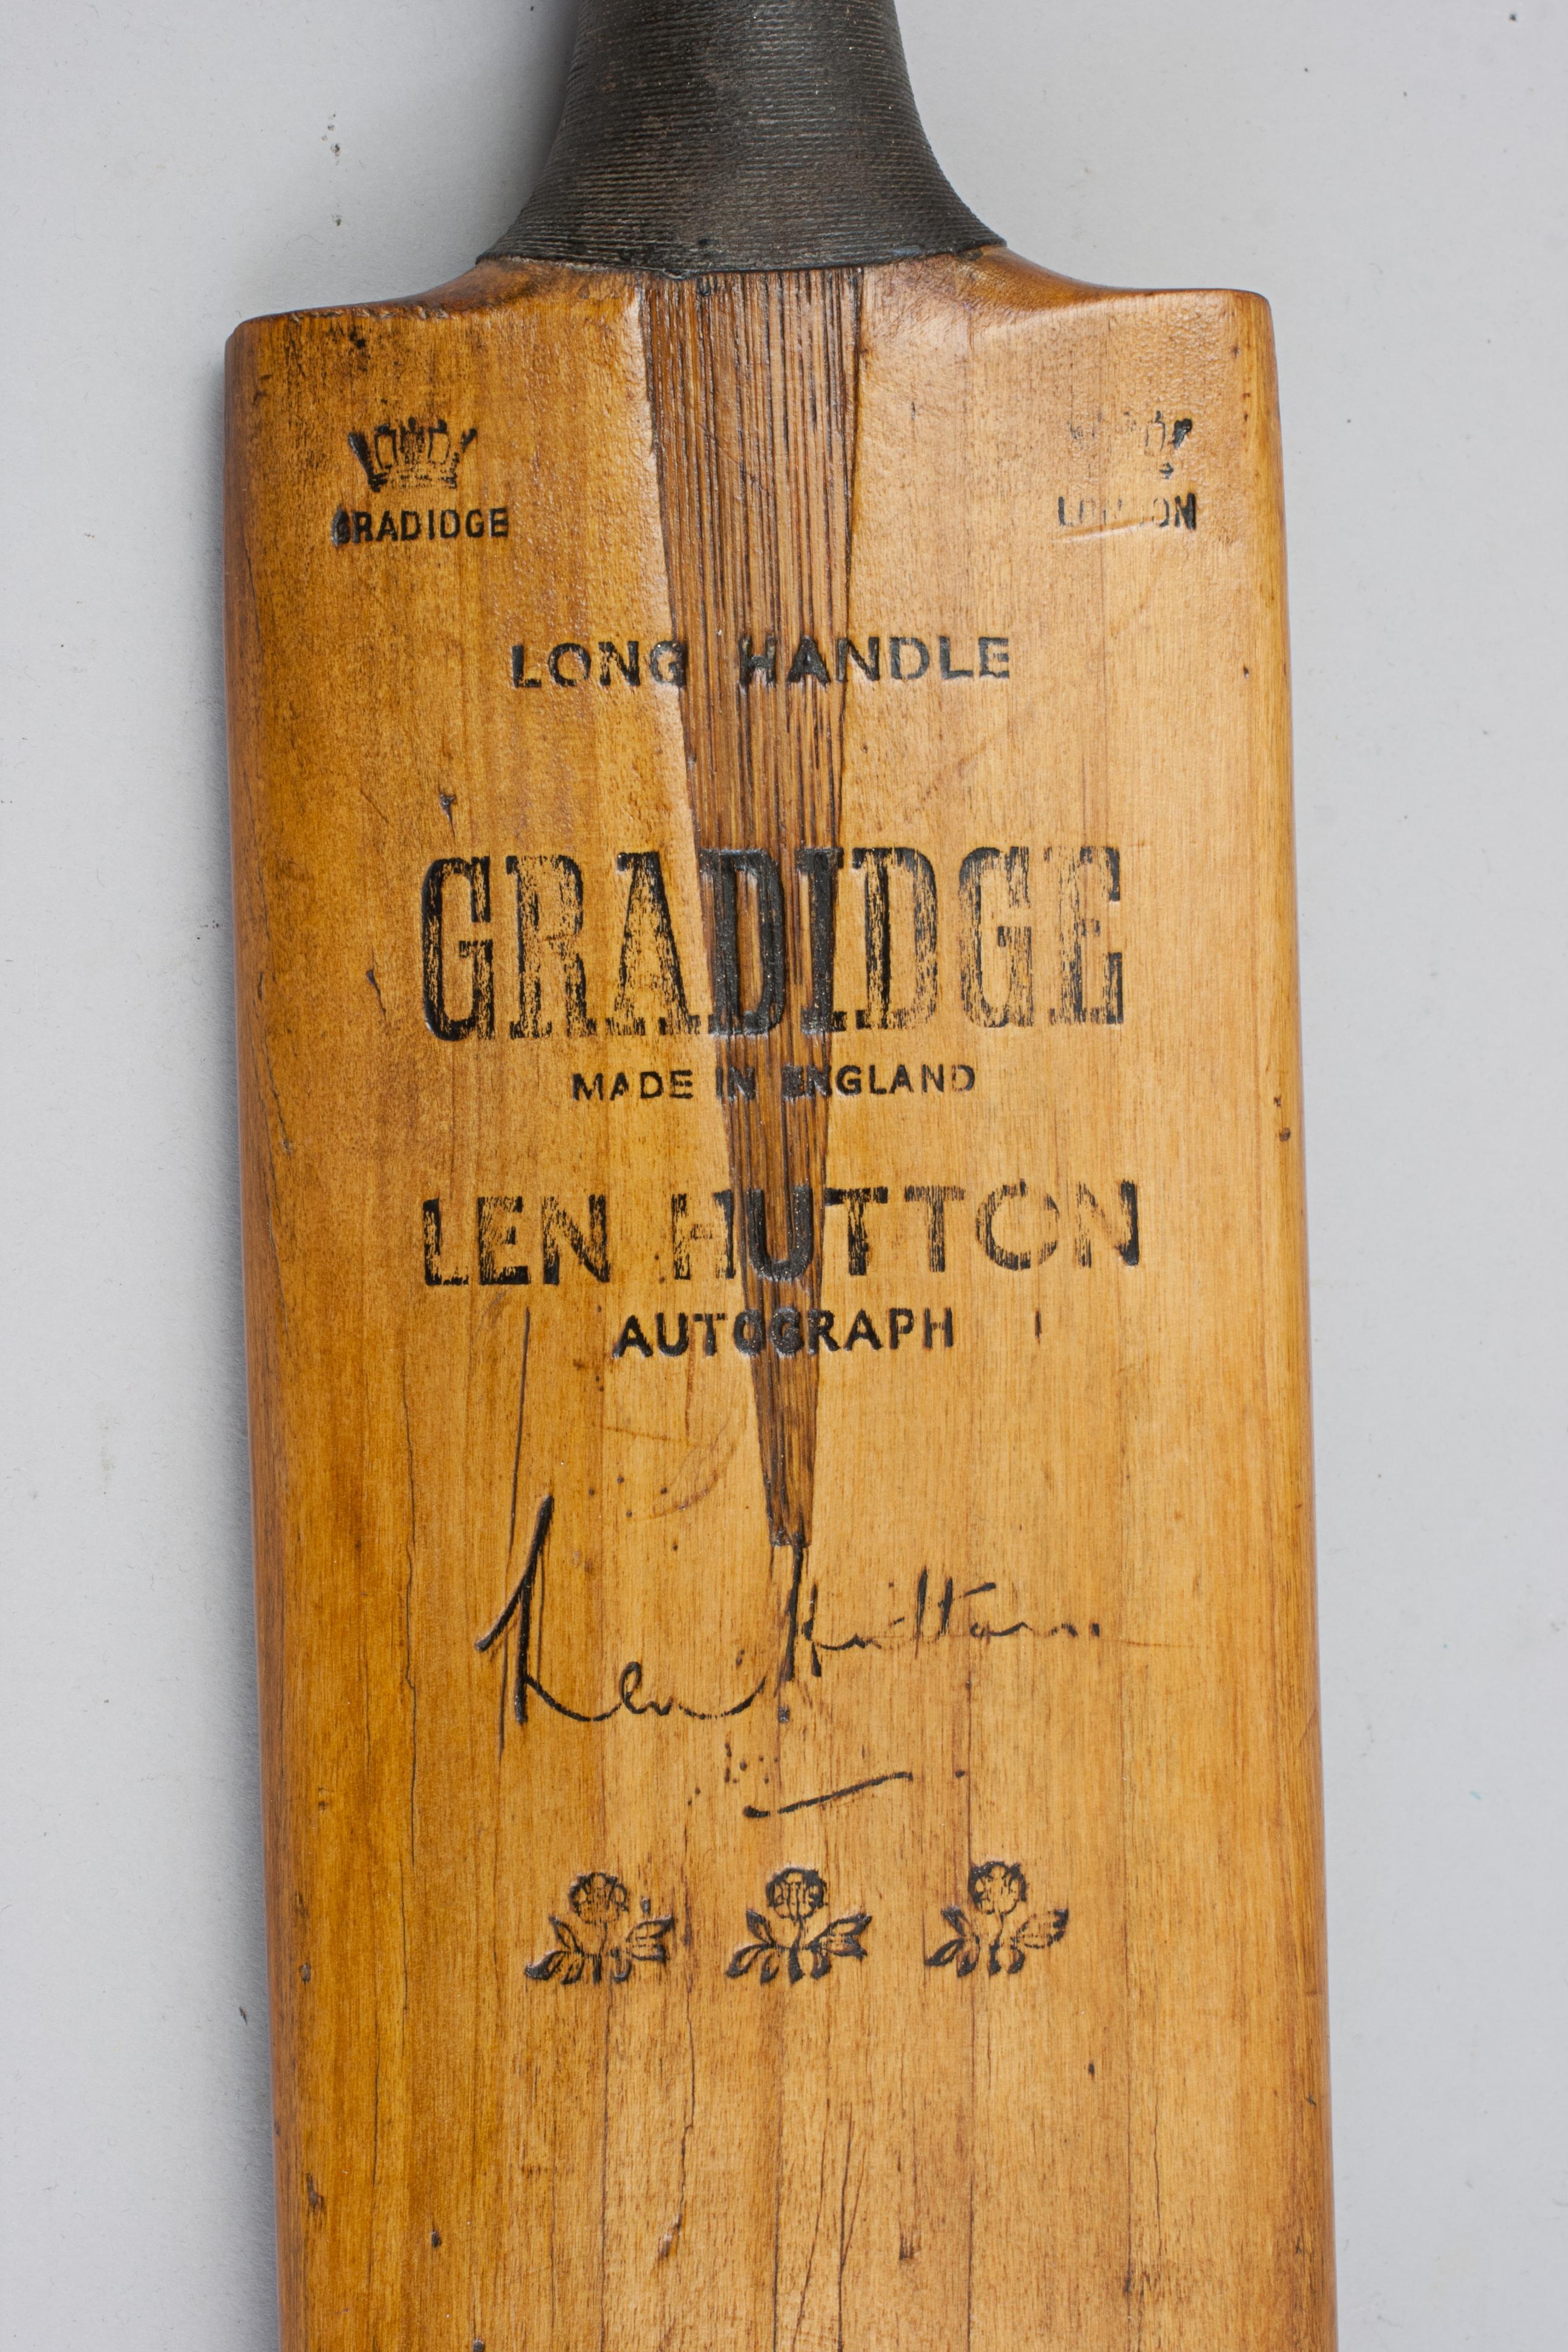 GRADIDGE
LONDON
LONG HANDLE
GRADIDGE
MADE IN ENGLAND
LEN HUTTON
AUTOGRAPH
Len Hutton